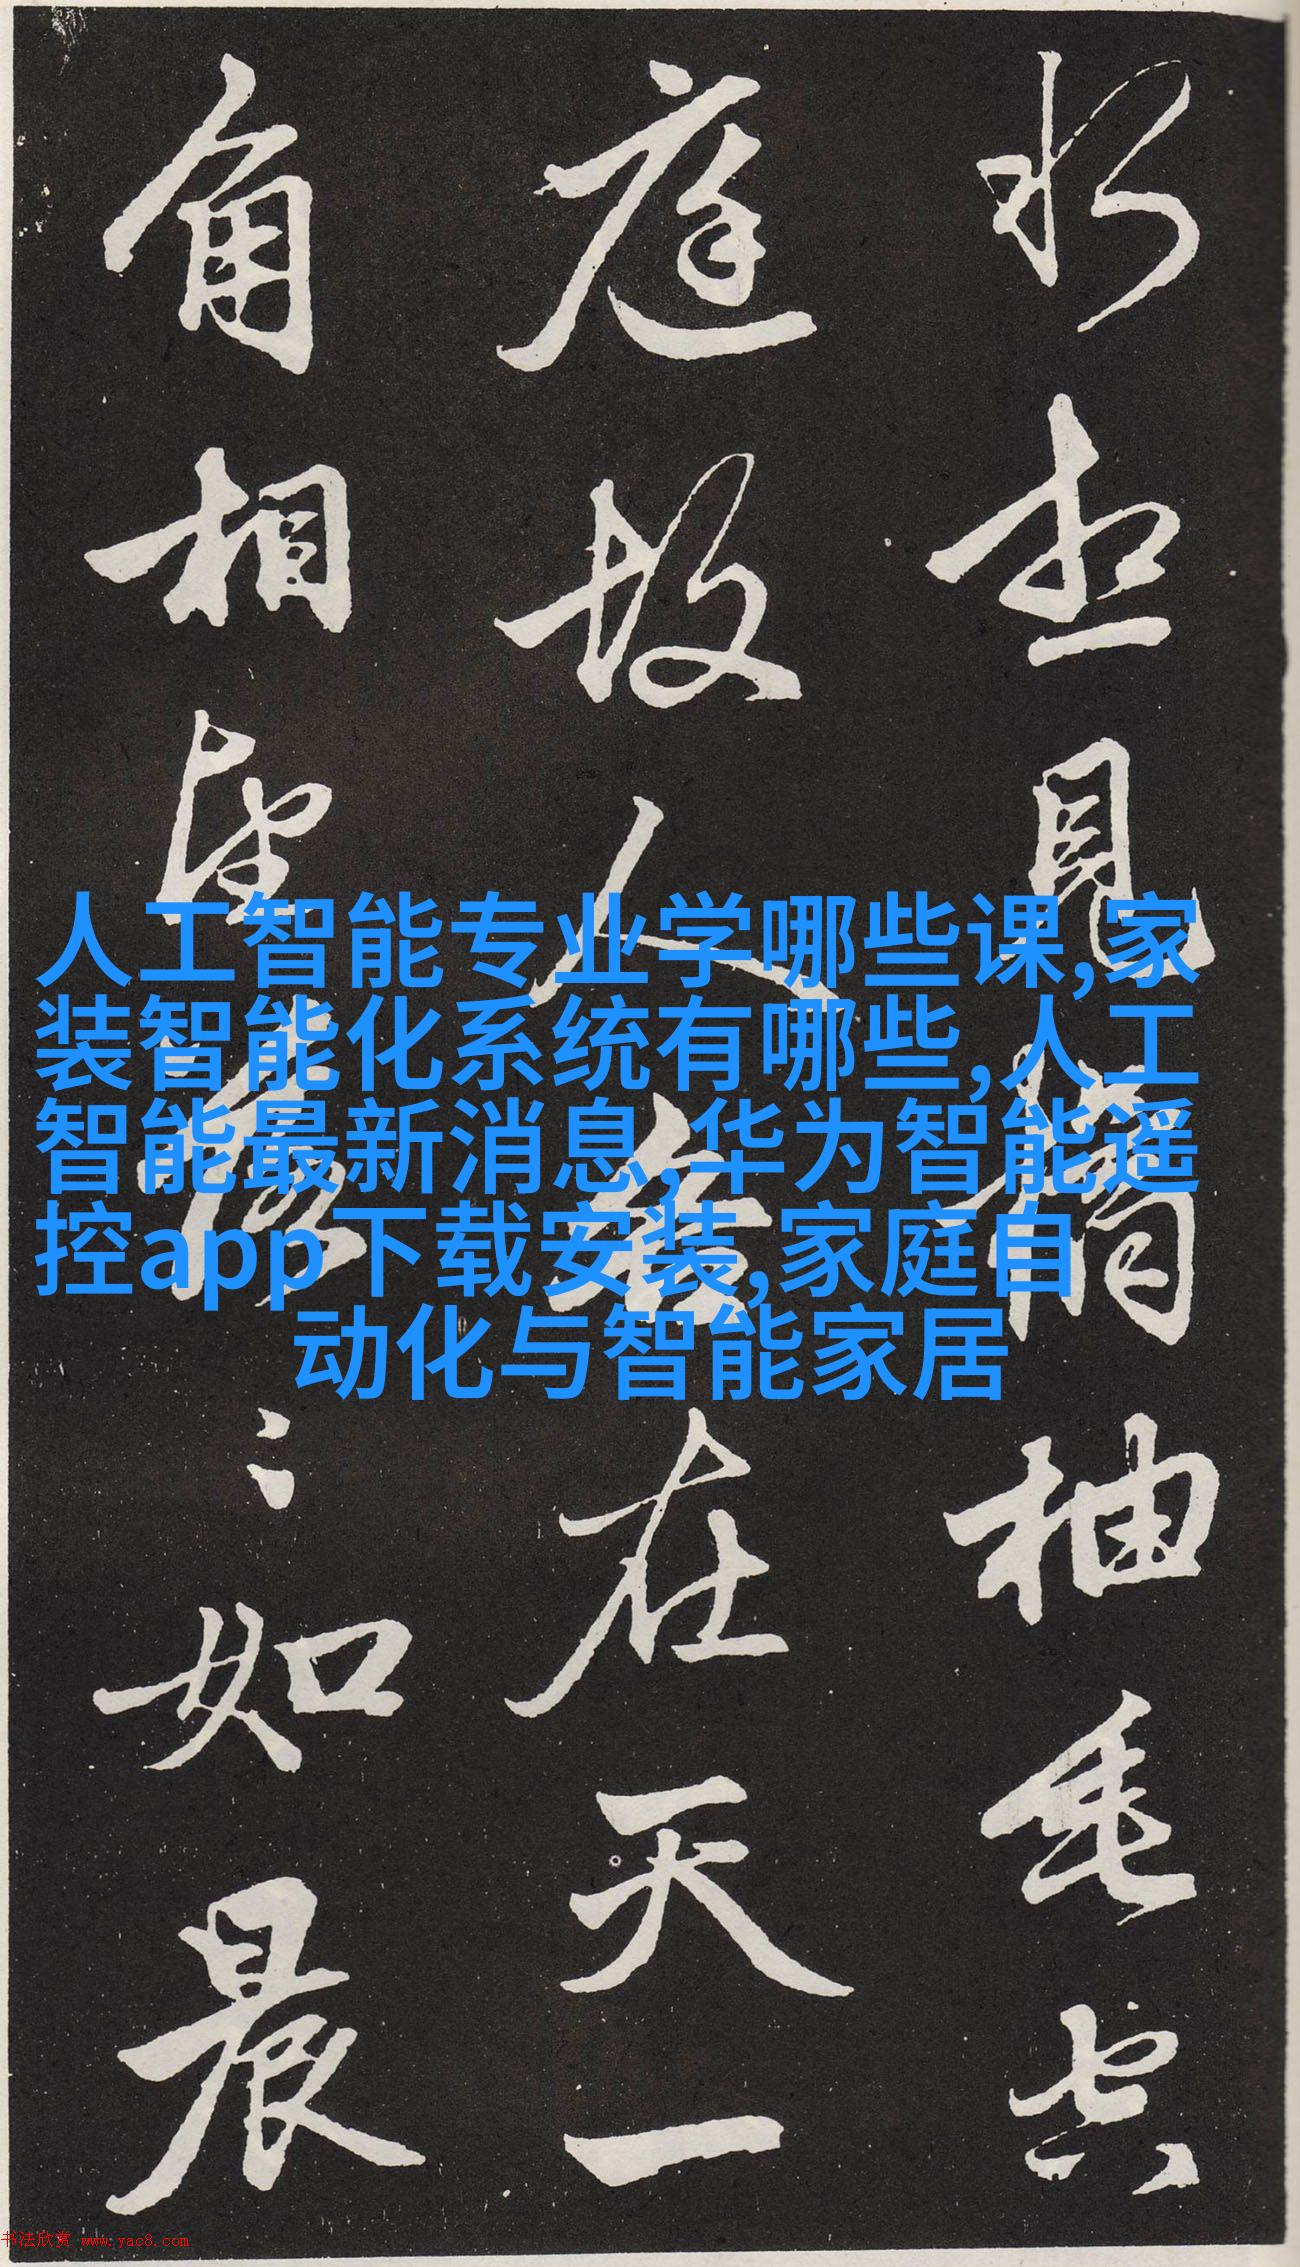 想見橘柚垂空
庭故人各在天一
角相望落落如晨
人工智能专业学哪些课,家
装智能化系统有哪些,人工
智能最新消息,华为智能遥
控app下载安装,家庭自
动化与智能家居
书法欣赏 www.yac8.com